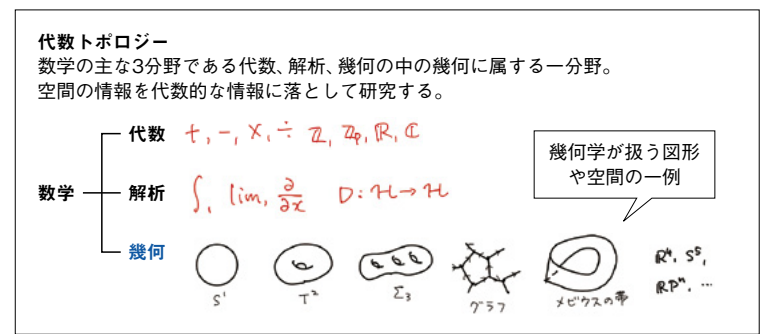 代数トポロジー
数学の主な3分野である代数、解析、幾何の中の幾何に属する一分野。
空間の情報を代数的な情報に落として研究する。
数学
代数 +, −, ×, ÷ ℤ, ℤₚ, ℝ, ℂ
解析 ∫, lim, ∂/∂x D: ℋ→ℋ
幾何
幾何学が扱う図形
や空間の一例
S¹
T²
Σ₃
グラフ
メビウスの帯
ℝ⁴, S⁵,
ℝPⁿ, …